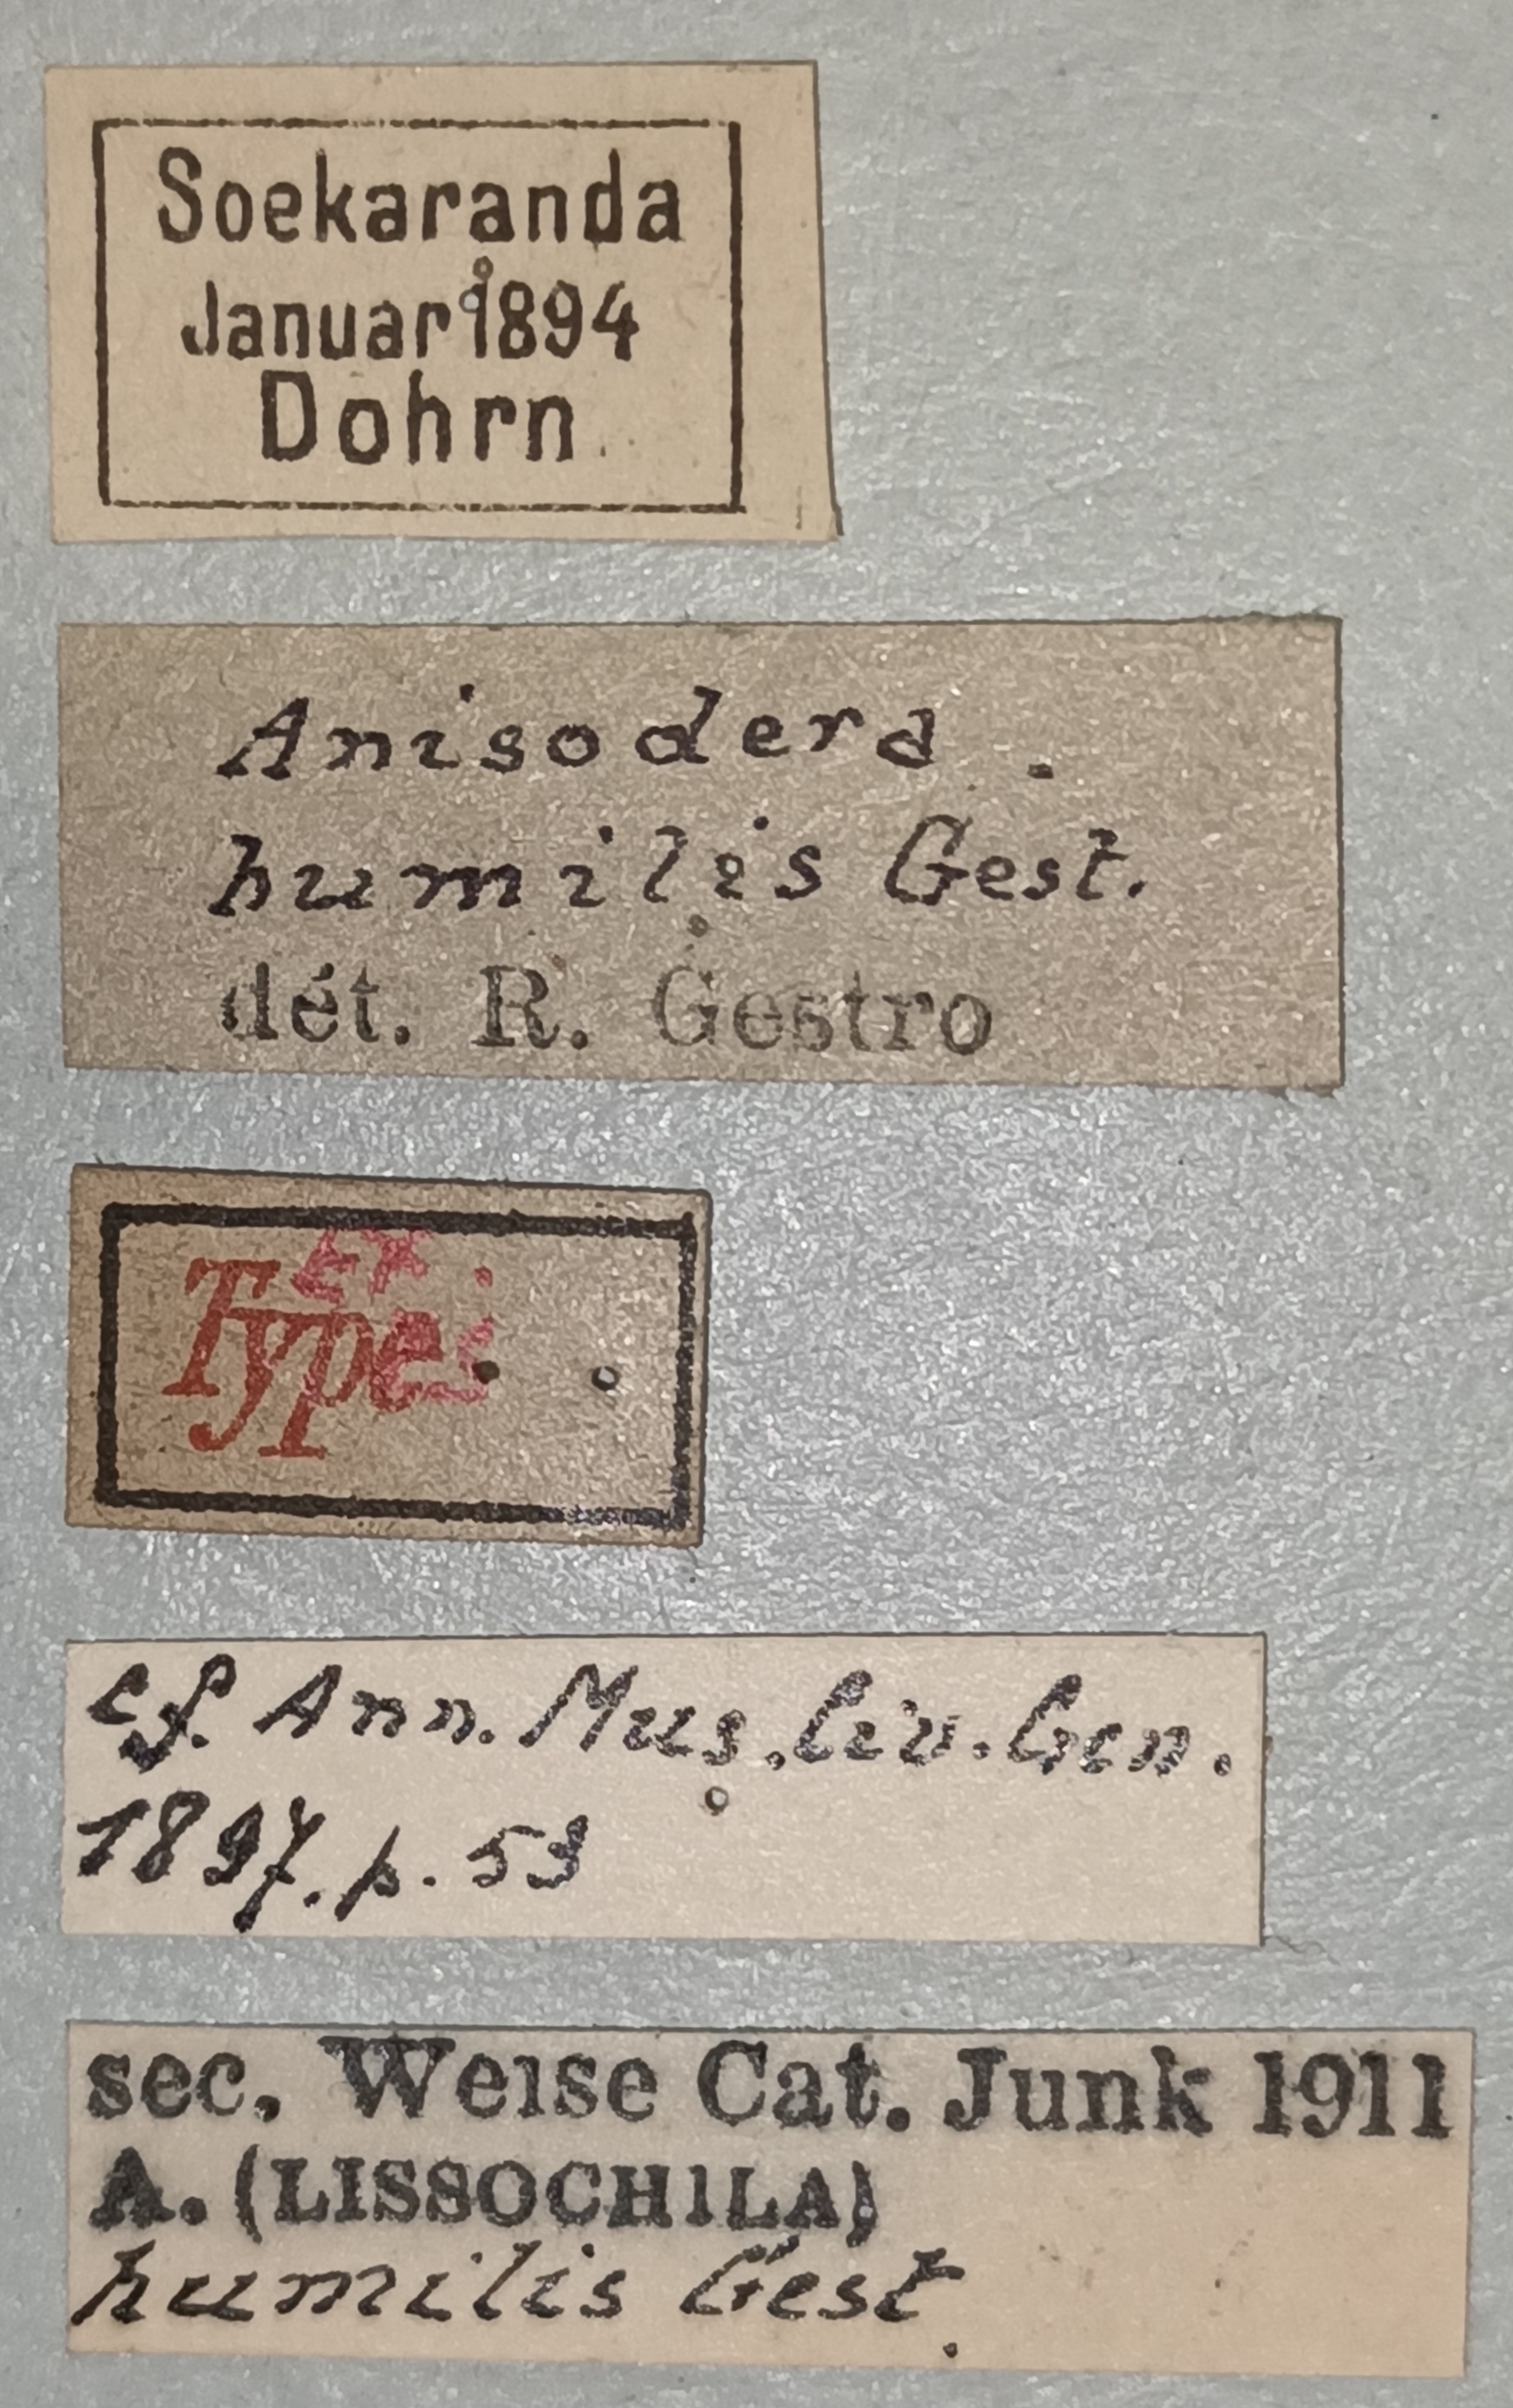 Soekaranda
Januar 1894
Dohrn
Anisodera
humilis Gest.
dét. R. Gestro
Ex
Typis
cf. Ann. Mus. Civ. Gen.
1897. p. 53
sec. Weise Cat. Junk 1911
A. (LISSOCHILA)
humilis Gest.